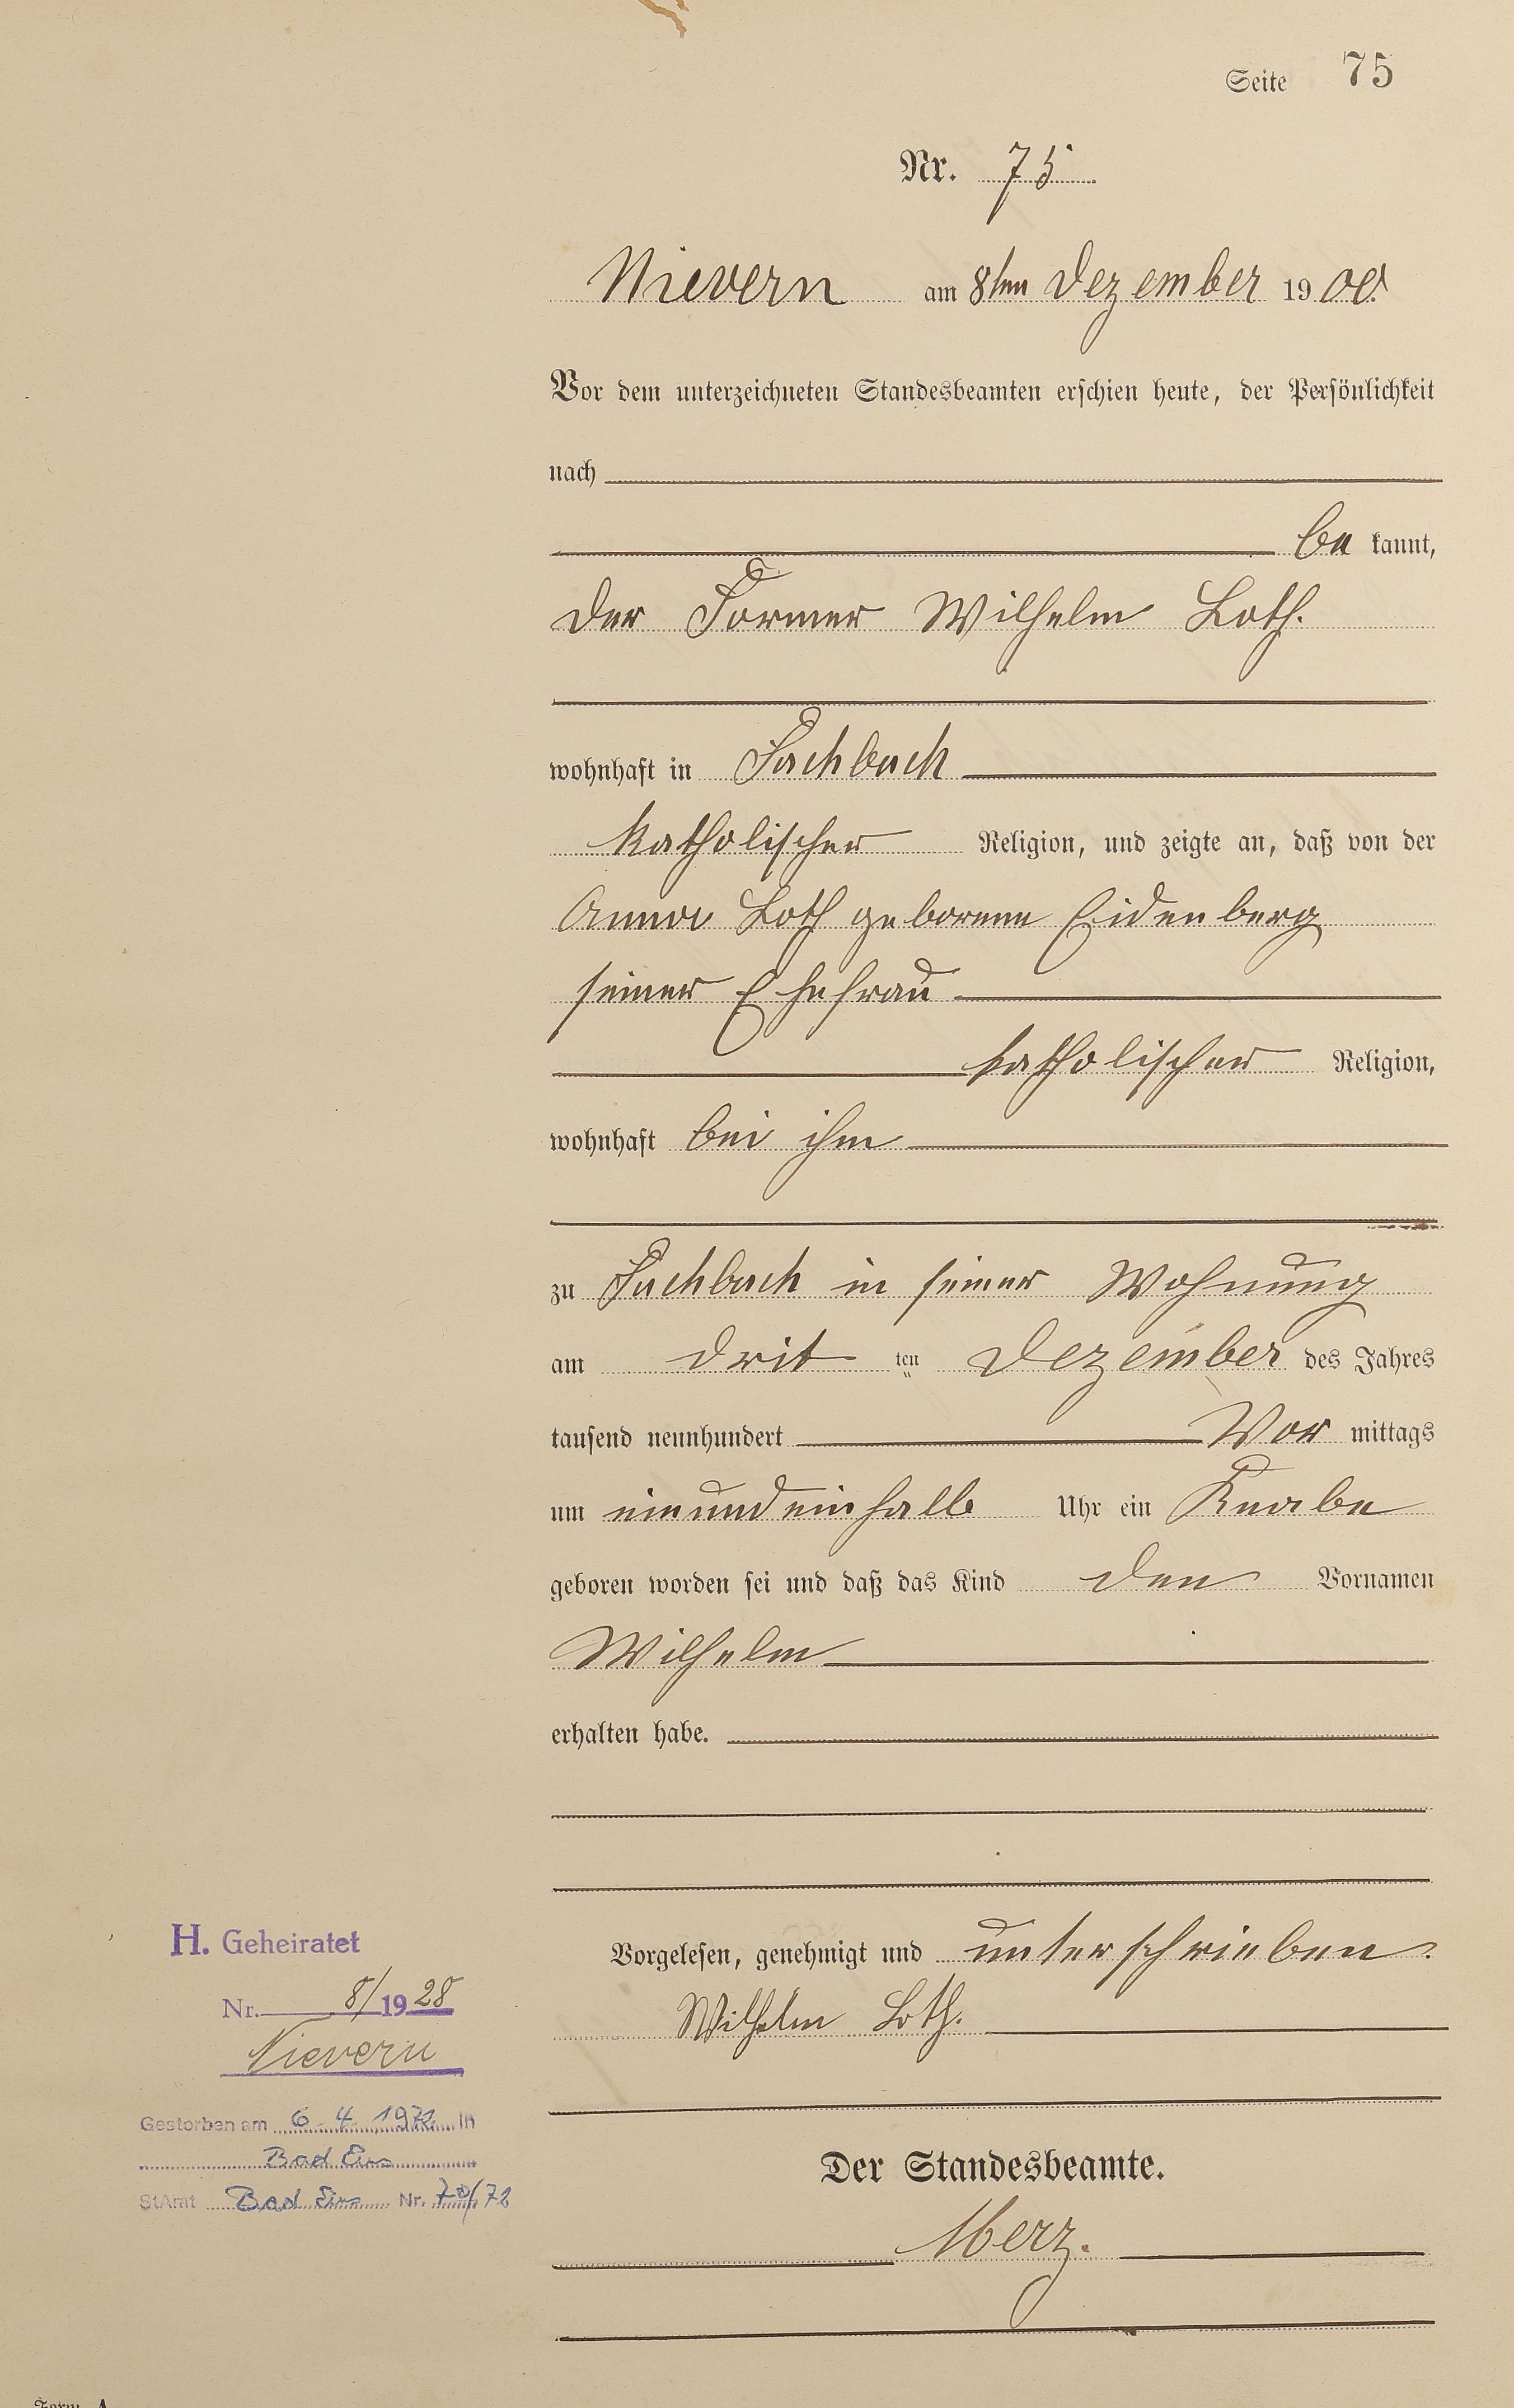 Seite 75
Nr. 75
Nievern am 8ten Dezember 1900.
Vor dem unterzeichneten Standesbeamten erschien heute, der Persönlichkeit
nach
be kannt,
der Former Wilhelm Loth.
wohnhaft in Fachbach
katholischer Religion, und zeigte an, daß von der
Anna Loth geborene Eidenberg
seiner Ehefrau
katholischer Religion,
wohnhaft bei ihm
zu Fachbach in seiner Wohnung
am drit ten Dezember des Jahres
tausend neunhundert Vor mittags
um einundeinhalb Uhr ein Knabe
geboren worden sei und daß das Kind den Vornamen
Wilhelm
erhalten habe.
Vorgelesen, genehmigt und unterschrieben.
Wilhelm Loth.
Der Standesbeamte.
Merz.
H. Geheiratet
Nr. 8/1928
Nievern
Gestorben am 6.4.1972 in
Bad Ems
StAmt Bad Ems Nr. 70/72
Form. A